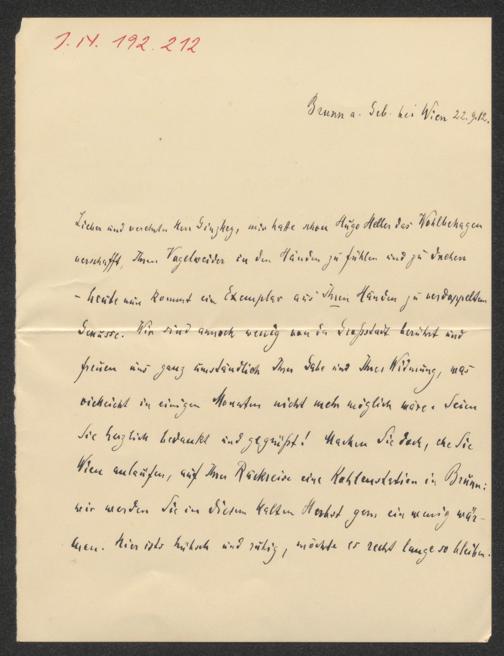 J.N. 192.212
Brunn a. Geb. bei Wien 22.9.12.
Lieber und verehrter Herr Ginzkey, mir hatte schon Hugo Heller das Wohlbehagen
verschafft, Ihren Vogelweider in den Händen zu fühlen und zu drehen
– heute nun kommt ein Exemplar aus Ihren Händen zu verdoppeltem
Genusse. Wir sind annoch wenig von der Großstadt berührt und
freuen uns ganz umständlich Ihrer Gabe und Ihrer Widmung, was
vielleicht in einigen Monaten nicht mehr möglich wäre. Seien
Sie herzlich bedankt und gegrüßt! Machen Sie doch, ehe Sie
Wien anlaufen, auf Ihrer Rückreise eine Kohlenstation in Brunn:
wir werden Sie in diesem kalten Herbst gern ein wenig wär-
men. Hier ists hübsch und ruhig, möchte es recht lange so bleiben.